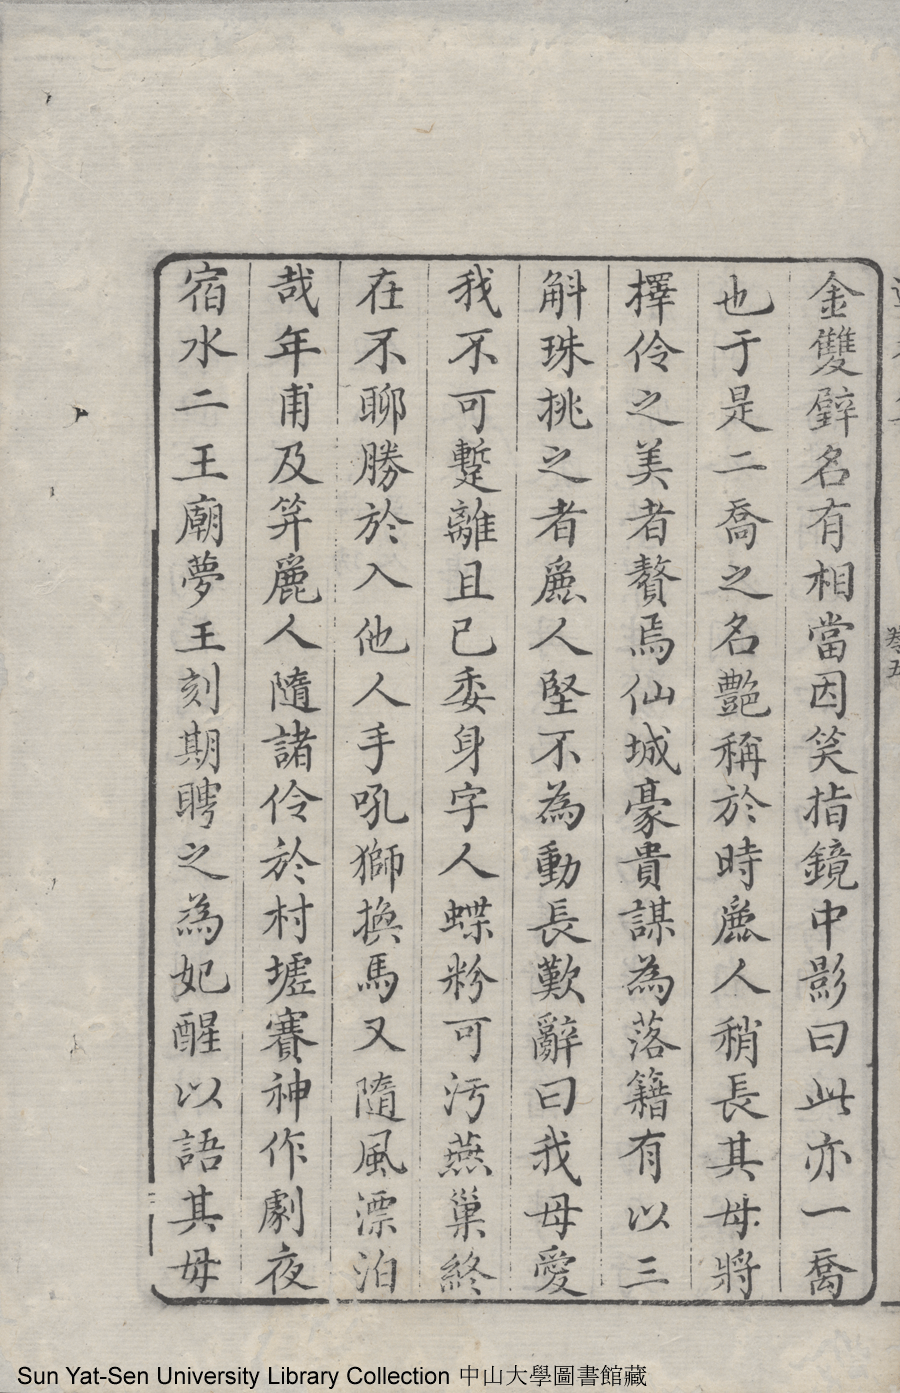 金雙璧名有相當因笑指鏡中影曰此亦一喬
也于是二喬之名艷稱於時麗人稍長其母將
擇伶之美者贅焉仙城豪貴謀為落籍有以三
斛珠挑之者麗人堅不為動長歎辭曰我母愛
我不可蹔離且已委身字人蝶粉可汚燕巢終
在不聊勝於入他人手吼獅換馬又隨風漂泊
哉年甫及笄麗人隨諸伶於村墟賽神作劇夜
宿水二王廟夢王刻期聘之為妃醒以語其母
卷五
Sun Yat-Sen University Library Collection 中山大學圖書館藏